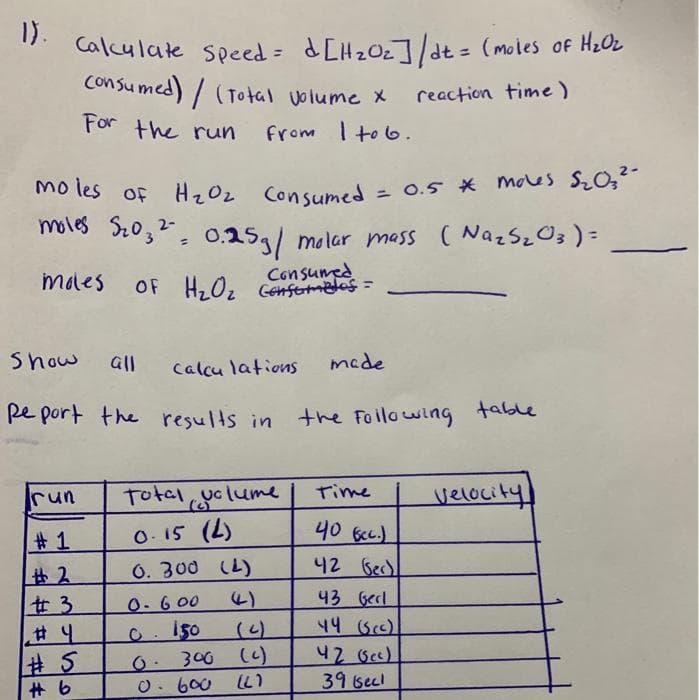 1).
Calculate speed = d[H₂O₂]/dt = (moles of H₂O₂
consumed) / (Total volume x reaction time)
For the run from 1 to 6.
moles of H₂O₂ Consumed = 0.5 * moles S₂O₃²⁻
moles S₂O₃²⁻ = 0.25g/ molar mass (Na₂S₂O₃) = ____
moles of H₂O₂ Consumed = ____
Show all calculations made
Report the results in the Following table
run Total volume (L) Time velocity
#1 0.15 (L) 40 (sec.)
#2 0.300 (L) 42 (sec)
#3 0.600 (L) 43 (sec)
#4 0.150 (L) 44 (sec)
#5 0.300 (L) 42 (sec)
#6 0.600 (L) 39 (sec)